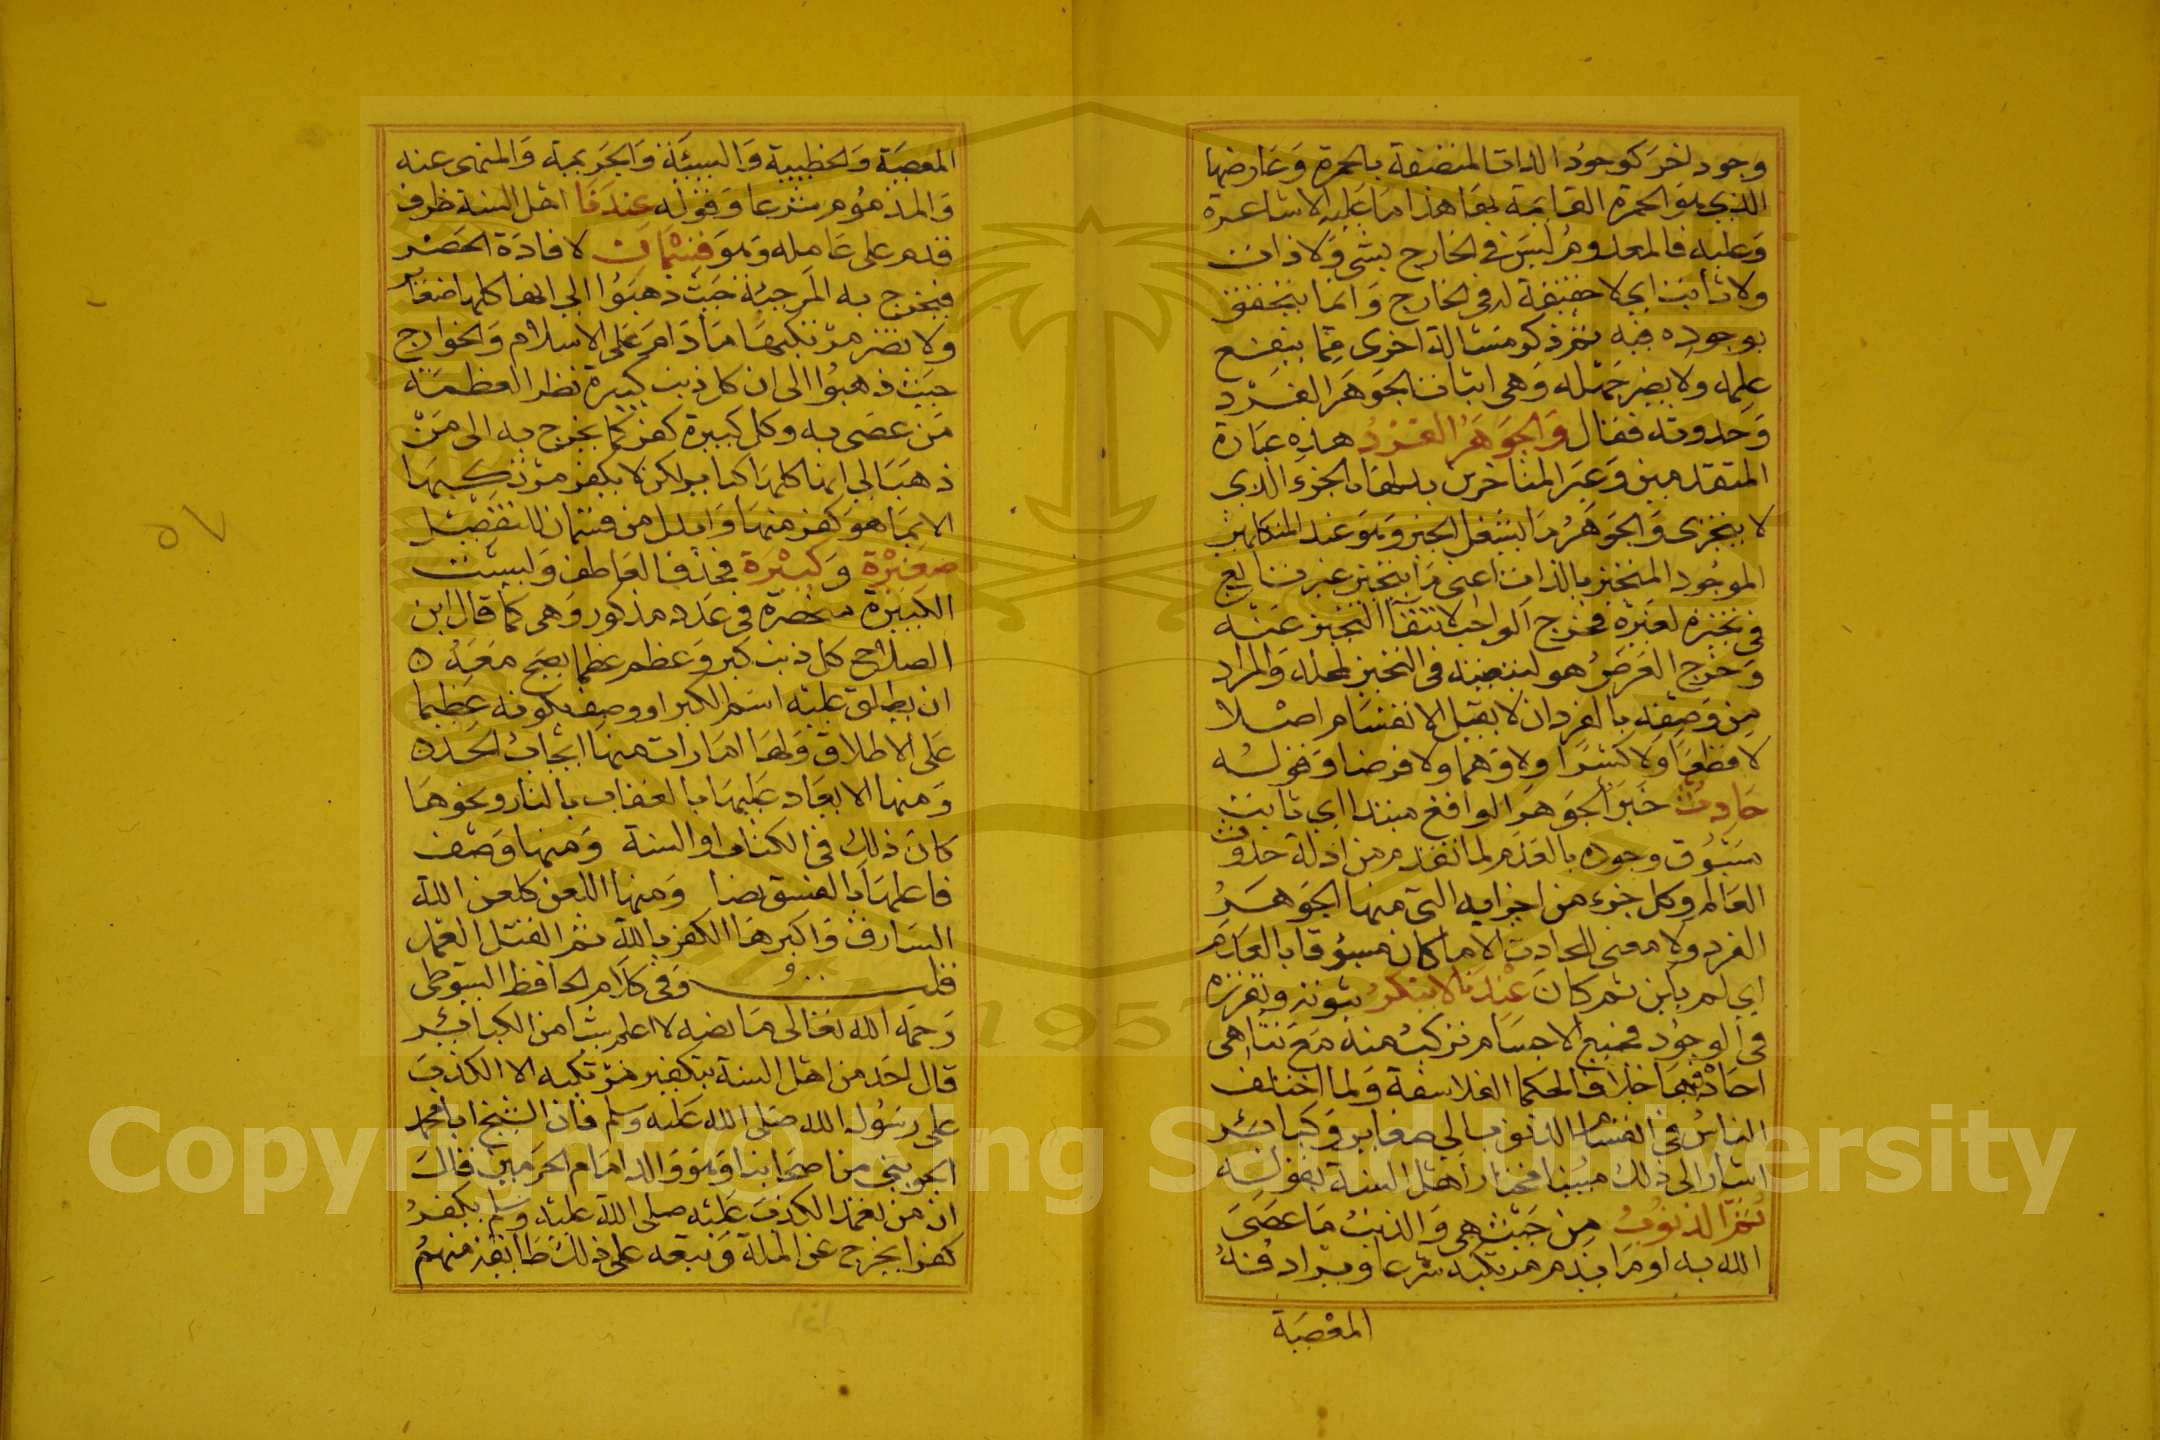 وجود اخر كوجود الذات المتصفة بالحمرة وعارضها
الذي هو الحمرة القائمة بها هذا ما عليه الاشاعرة
وعليه فالمعدوم ليس في الخارج بشى ولا ذات
ولا ثابت اي لا حقيقة له في الخارج وانما يتحقق
بوجوده فيه ثم ذكر مسالة اخرى مما ينفع
علمه ولا يضر جهله وهى اثبات الجوهر الفرد
وحدوثه فقال والجوهر الفرد هذه عبارة
المتقدمين وعبر المتاخرين بدلها بالجزء الذي
لا يتجزى والجوهر ما يشغل الحيز وهو عند المتكلمين
الموجود المتحيز بالذات اعنى ما يتحيز غير تابع
في تحيزه لغيره فخرج الواجب لانتفا التحيز عنه
وخرج العرض هو لتبعيته في التحيز لمحله والمراد
من وصفه بالفرد ان لا يقبل الانقسام اصلا
لا قطعا ولا كسرا ولا وهما ولا فرضا وقوله
حادث خبر الجوهر الواقع مبتدا اي ثابت
مسبوق وجوده بالعدم لما تقدم من ادلة حدوث
العالم وكل جزء من اجزايه التي منها الجوهر
الفرد ولا معنى للحادث الا ما كان مسبوقا بالعدم
اي لم يكن ثم كان عندنا لا ينكر ثبوته وتقرره
في الوجود فجميع الاجسام تركبت منه مع تناهى
احادها فيها خلافا لحكما الفلاسفة ولما اختلف
الناس في انقسام الذنوب الي صغاير وكبائر
اشار الى ذلك مبينا مختار اهل السنة بقوله
ثم الذنوب من حيث هي والذنب ما عصى
الله به او ما يذم مرتكبه شرعا ويرادفه
المعصية
المعصية والخطيية والسيئة والجريمة والمنهى عنه
والمذموم شرعا وقوله عندنا اهل السنة ظرف
قدم على عامله وهو قسمان لافادة الحصر
فيخرج به المرجئة حيث ذهبوا الي انها كلها صغاير
ولا تضر مرتكبها ما دام على الاسلام والخوارج
حيث ذهبوا الى ان كل ذنب كبيرة نظر العظمة
من عصى به وكل كبيرة كفر كما يخرج به الى من
ذهب الي انها كلها كباير لكن لا يكفر مرتكبها
الا بما هو كفر منها وابدل من قسمان للتفصيل
صغيرة وكبيرة فحذف العاطف وليست
الكبيرة منحصرة في عدد مذكور وهى كما قال ابن
الصلاح كل ذنب كبر وعظم عظما يصح معه
ان يطلق عليه اسم الكبر او وصف بكونه عظيما
على الاطلاق ولها امارات منها ايجاب الحد
ومنها الايعاد عليها بالعذاب بالنار ونحوها
كان ذلك في الكتاب او السنة ومنها وصف
فاعلها بالفسق نصا ومنها اللعن كلعن الله
السارق واكبرها الكفر بالله ثم القتل العمد
قلت وفي كلام الحافظ السيوطي
رحمه الله تعالى ما نصه لا اعلم شيا من الكبائر
قال احد من اهل السنة بتكفير مرتكبه الا الكذب
على رسول الله صلى الله عليه وسلم فان الشيخ ابا محمد
الجويني من اصحابنا وهو والد امام الحرمين قال
ان من تعمد الكذب عليه صلى الله عليه وسلم يكفر
كفرا يخرج عن الملة وتبعه على ذلك طايفة منهم
Copyright © King Saud University
1957